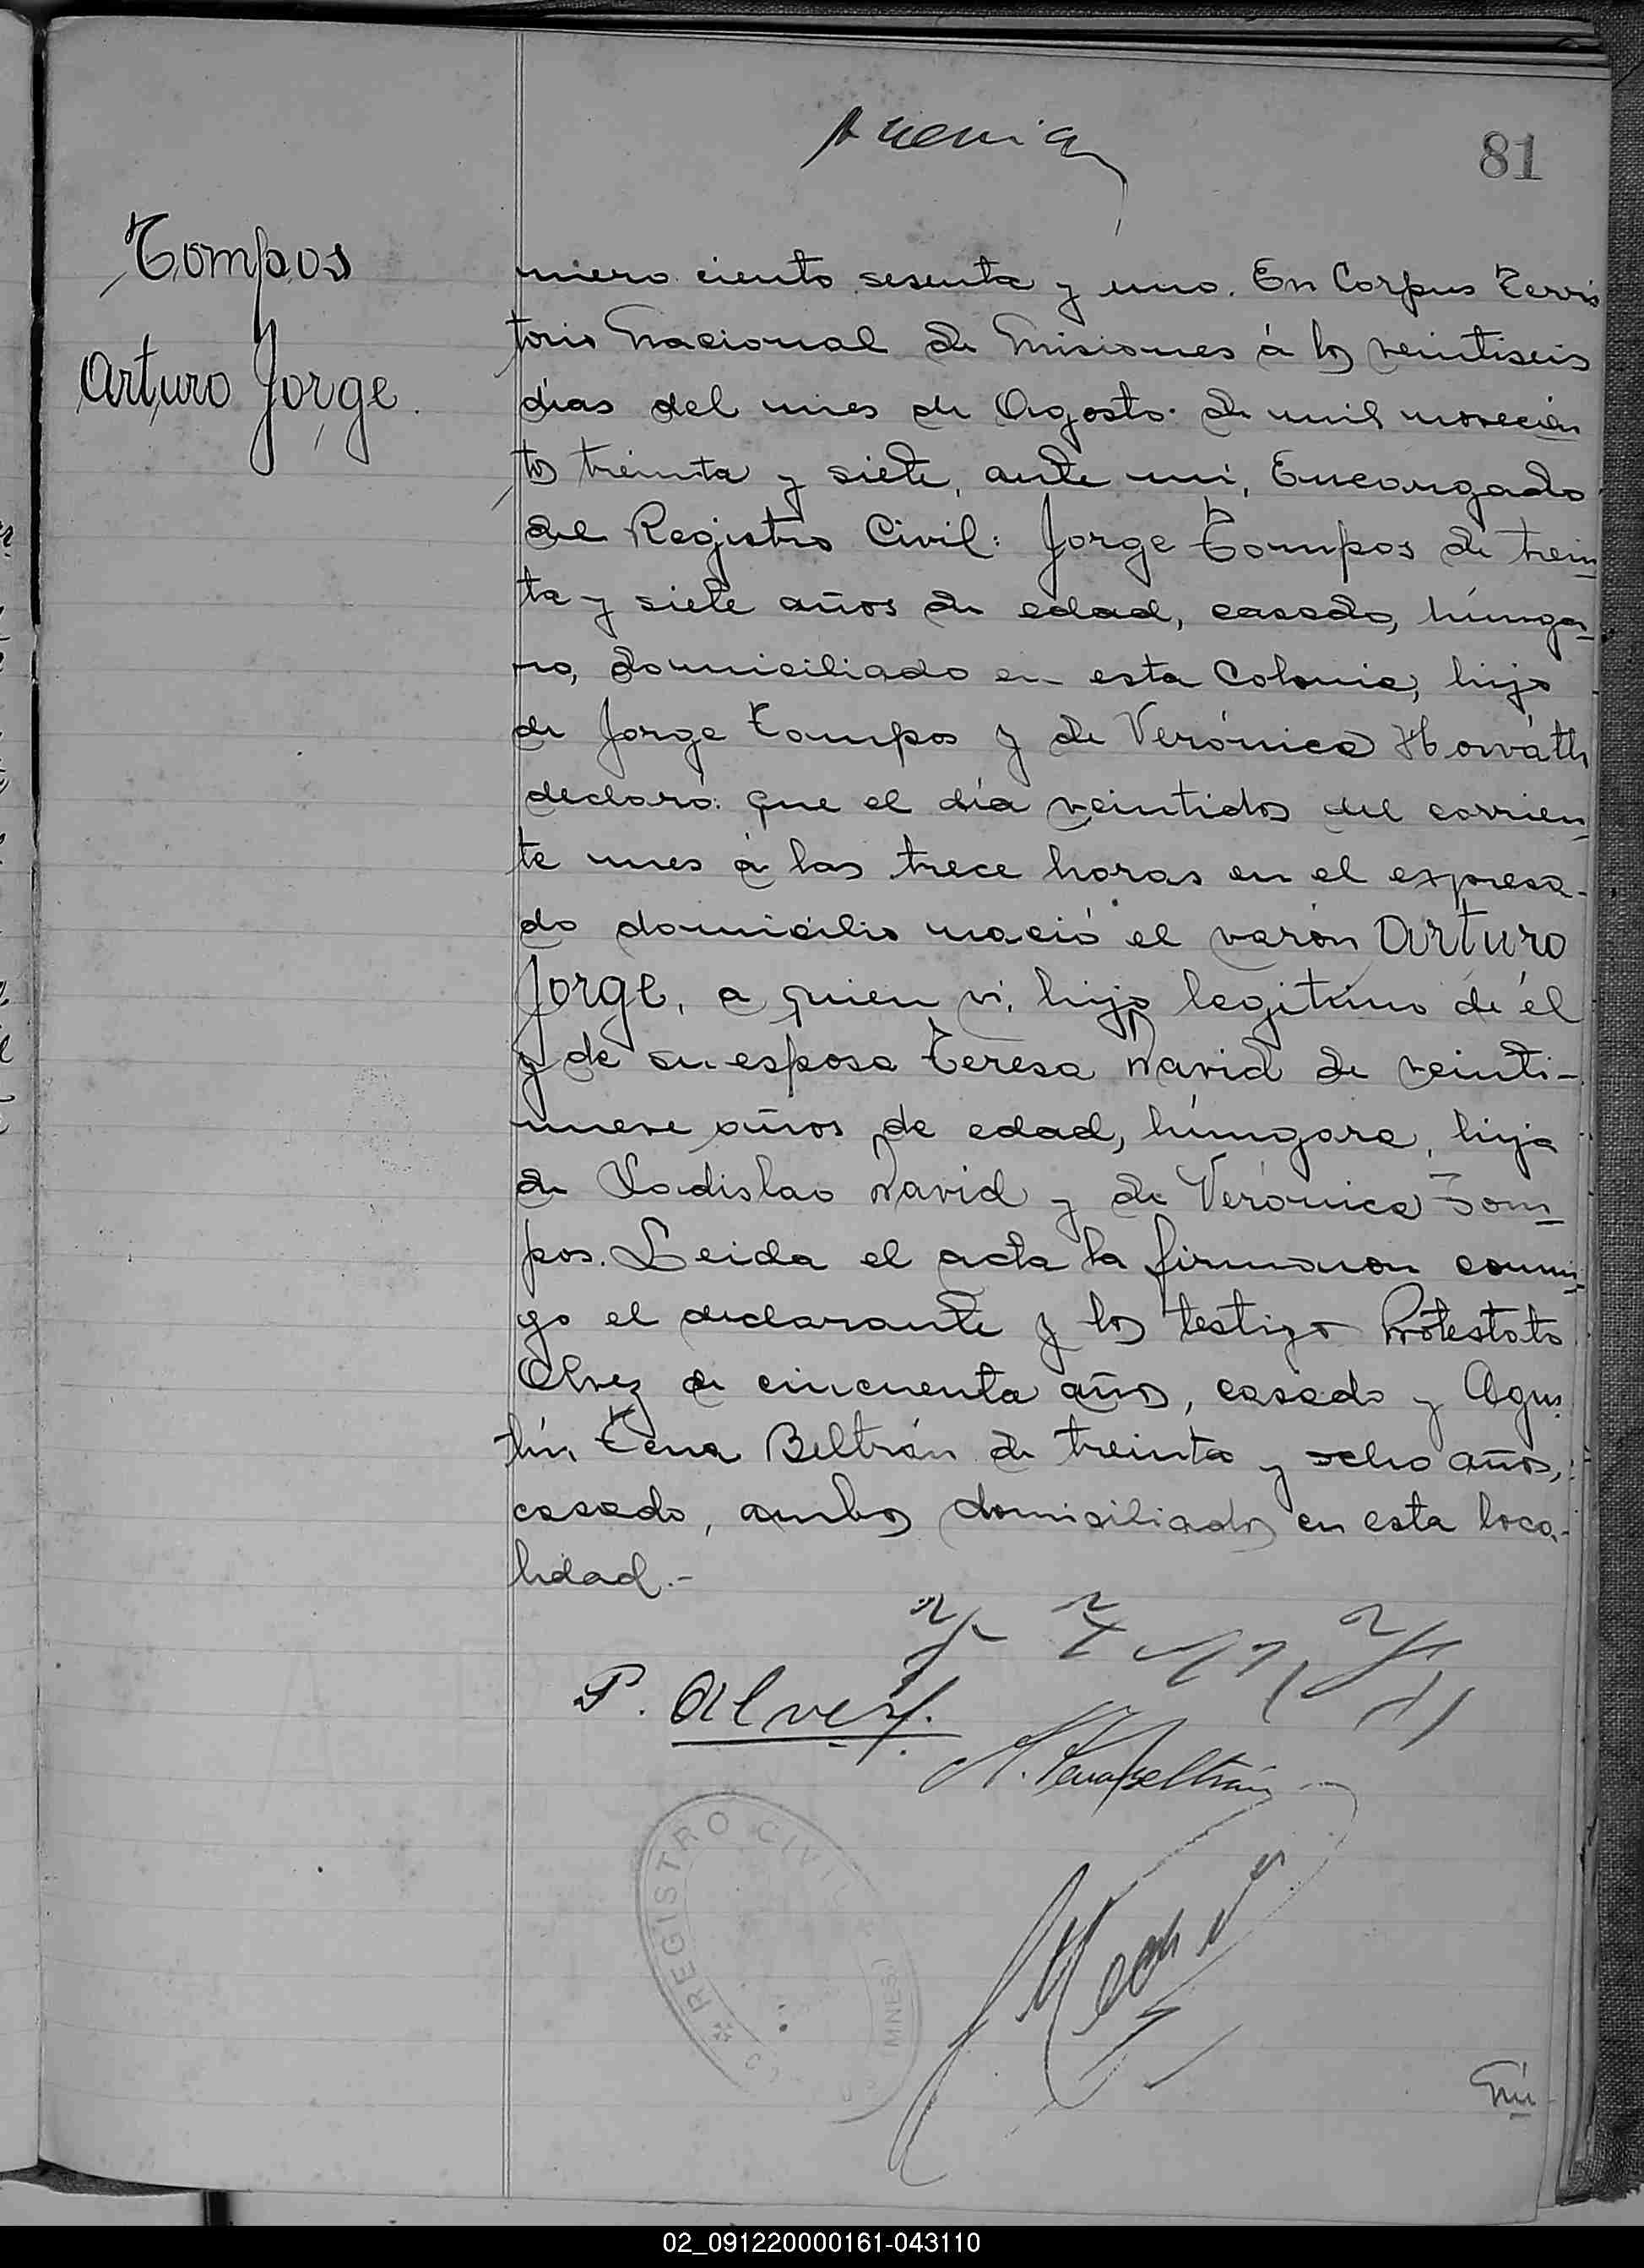 81
Tompos
Arturo Jorge.
mero ciento sesenta y uno. En Corpus Terri
torio Nacional de Misiones á los veintiseis
días del mes de Agosto de mil novecien
tos treinta y siete, ante mi, Encargado
del Registro Civil: Jorge Tompos de trein
ta y siete años de edad, casado, húnga-
ro, domiciliado en esta Colonia, hijo
de Jorge Tompos y de Verónica Horváth
declaró: que el día veintidos del corrien
te mes á las trece horas en el expresa-
do domicilio nació el varón Arturo
Jorge, a quien vi, hijo legitimo de él
y de su esposa Teresa David de veinti-
nueve años de edad, húngara, hija
de Ladislao David y de Verónica Tom-
pos. Leida el acta la firmaron conmi-
go el declarante y los testigos Protestato
Alvez de cincuenta años, casado y Agus
tín Tena Beltrán de treinta y ocho años,
casado, ambos domiciliados en esta loca-
lidad.-
P. Alvez.
A. Tena Beltrán
REGISTRO CIVIL
MNES)
Nú
02_091220000161-043110